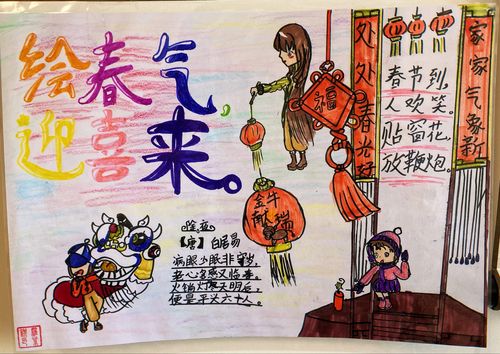 绘春气,
迎喜来。
福
处处春光好
家家气象新
春节到,
人欢笑。
贴窗花,
放鞭炮。
金牛
献瑞
除夜
【唐】白居易
病眼少眠非守岁,
老心多感又临春。
火销灯尽天明后,
便是平头六十人。